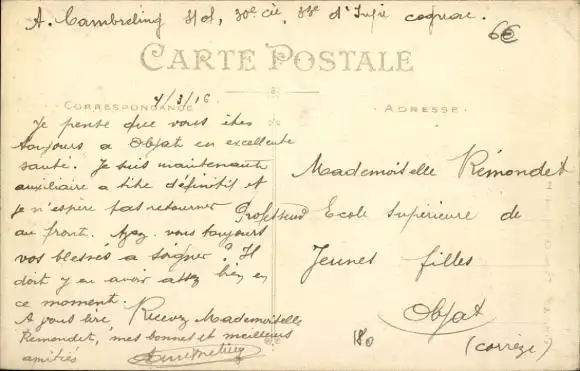 A. Cambreling s/of, 30e cie, 38e d'Infie cognac.
6€
CARTE POSTALE
CORRESPONDANCE
ADRESSE
4/3/16
Je pense que vous êtes
toujours a Objat en excellente
santé. Je suis maintenant
auxiliaire a titre définitif et
je n'espère pas retourner
au front. Avez vous toujours
vos blessés a soigner? Il
doit y en avoir assez bien en
ce moment.
A vous lire Recevez Mademoiselle
Rémondet, mes bonnes et meilleurs
amitiés
Mademoiselle Rémondet
Professeur Ecole Supérieure de
Jeunes filles
Objat
(corrèze)
180